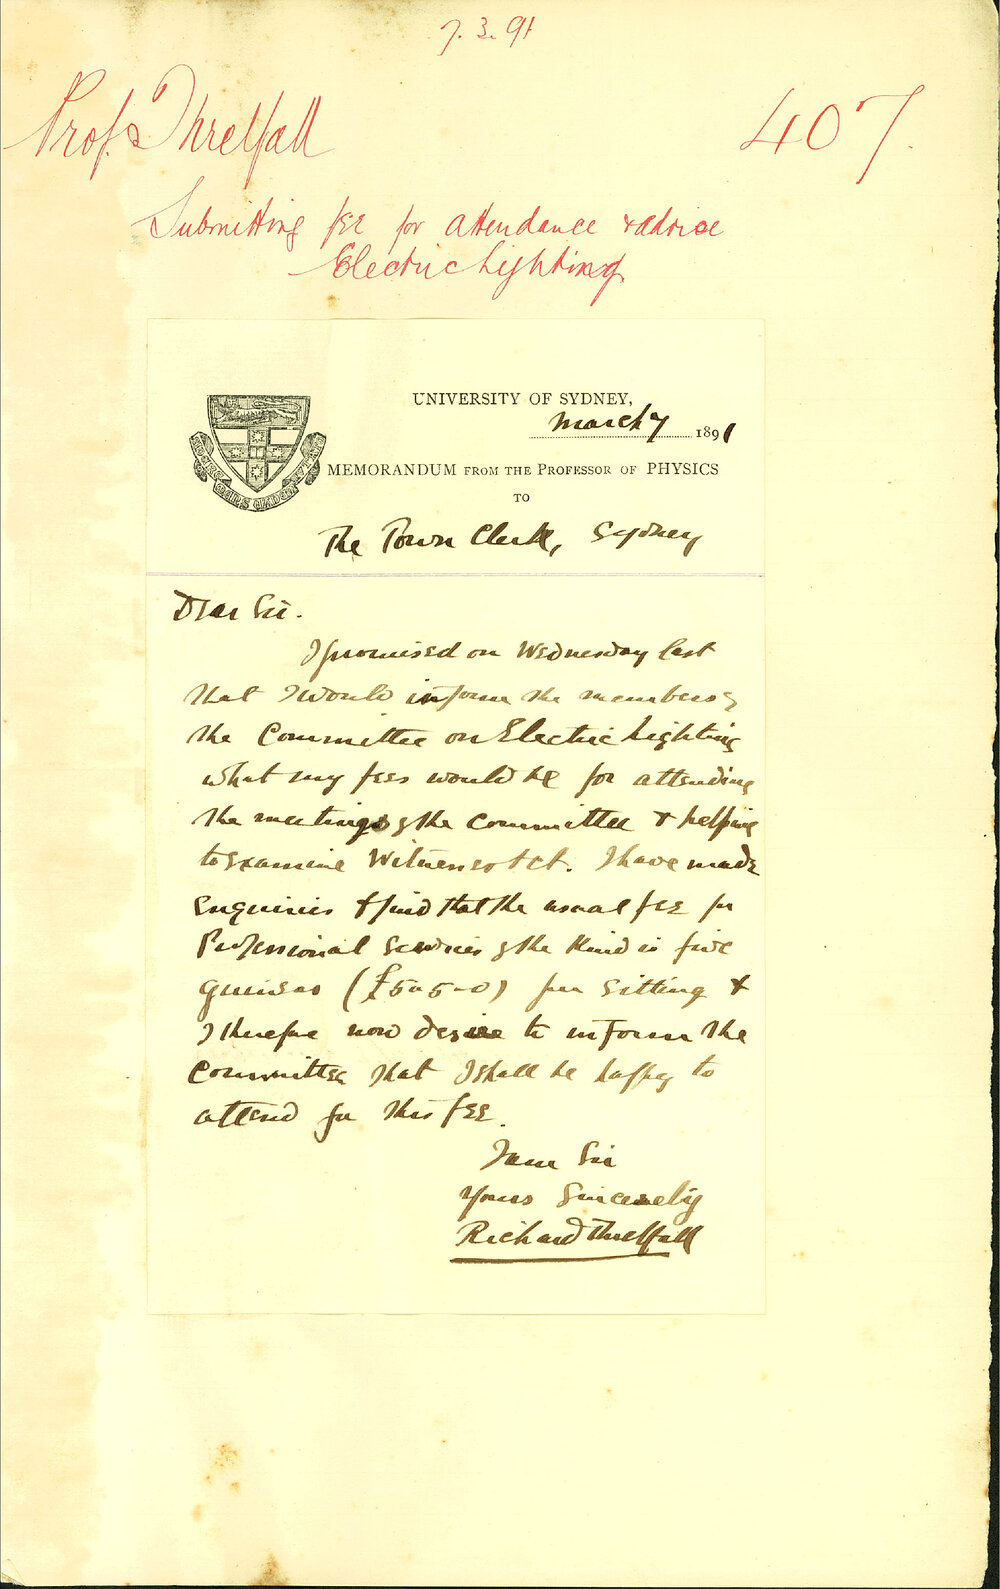 7.3.91
Prof. Threlfall
407.
Submitting fee for attendance & advice
Electric Lighting
UNIVERSITY OF SYDNEY,
March 7 1891
MEMORANDUM FROM THE PROFESSOR OF PHYSICS
TO
The Town Clerk, Sydney
Dear Sir.
I promised on Wednesday last
that I would inform the members of
the Committee on Electric Lighting
what my fees would be for attending
the meetings of the Committee & helping
to examine Witnesses &ct. I have made
enquiries & find that the usual fee for
Professional Services of the kind is five
guineas (£5-5-0) per sitting &
I therefore now desire to inform the
Committee that I shall be happy to
attend for this fee.
I am Sir
Yours Sincerely
Richard Threlfall